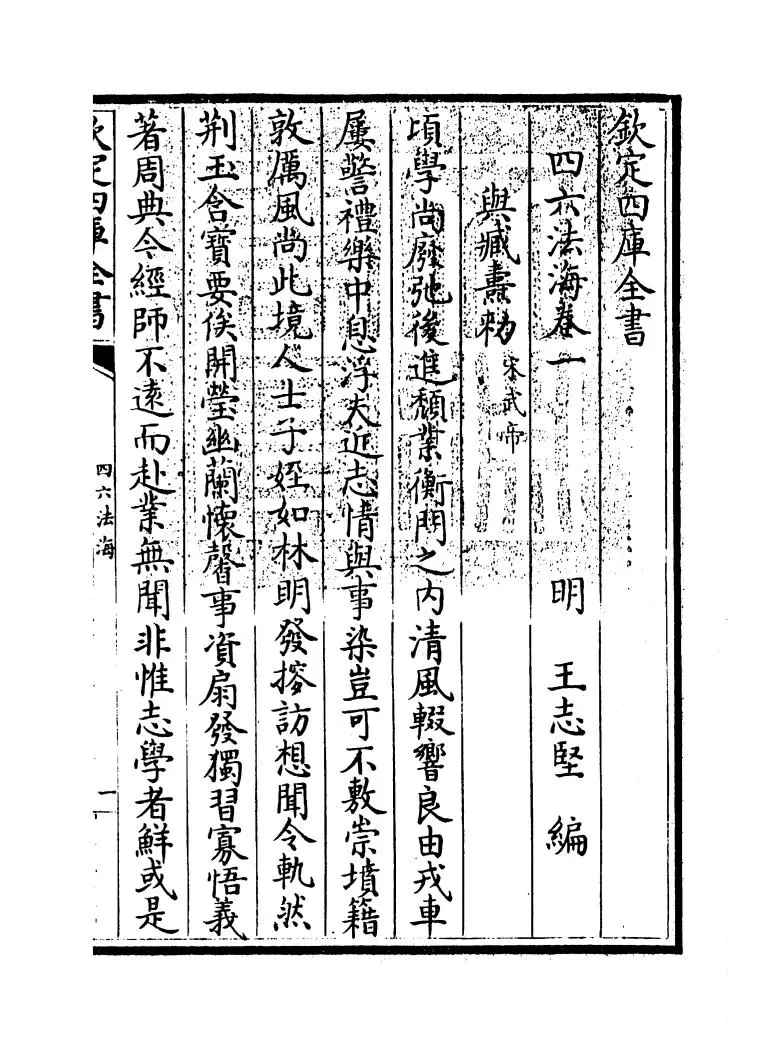 欽定四庫全書
四六法海卷一　　明　王志堅　編
與臧燾勑宋武帝
頃學尚廢弛後進頹業衡門之内清風輟響良由戎車
屢警禮樂中息浮夫近志情與事染豈可不敷崇墳籍
敦厲風尚此境人士子姪如林明發搜訪想聞令軌然
荆玉含寳要俟開瑩幽蘭懷馨事資扇發獨習寡悟義
著周典今經師不遠而赴業無聞非惟志學者鮮或是
欽定四庫全書
四六法海
一